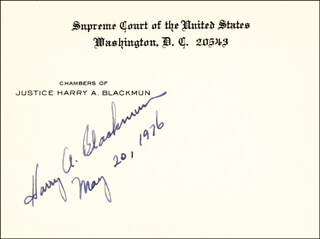 Supreme Court of the United States
Washington, D. C. 20543
CHAMBERS OF
JUSTICE HARRY A. BLACKMUN
Harry A. Blackmun
May 20, 1976